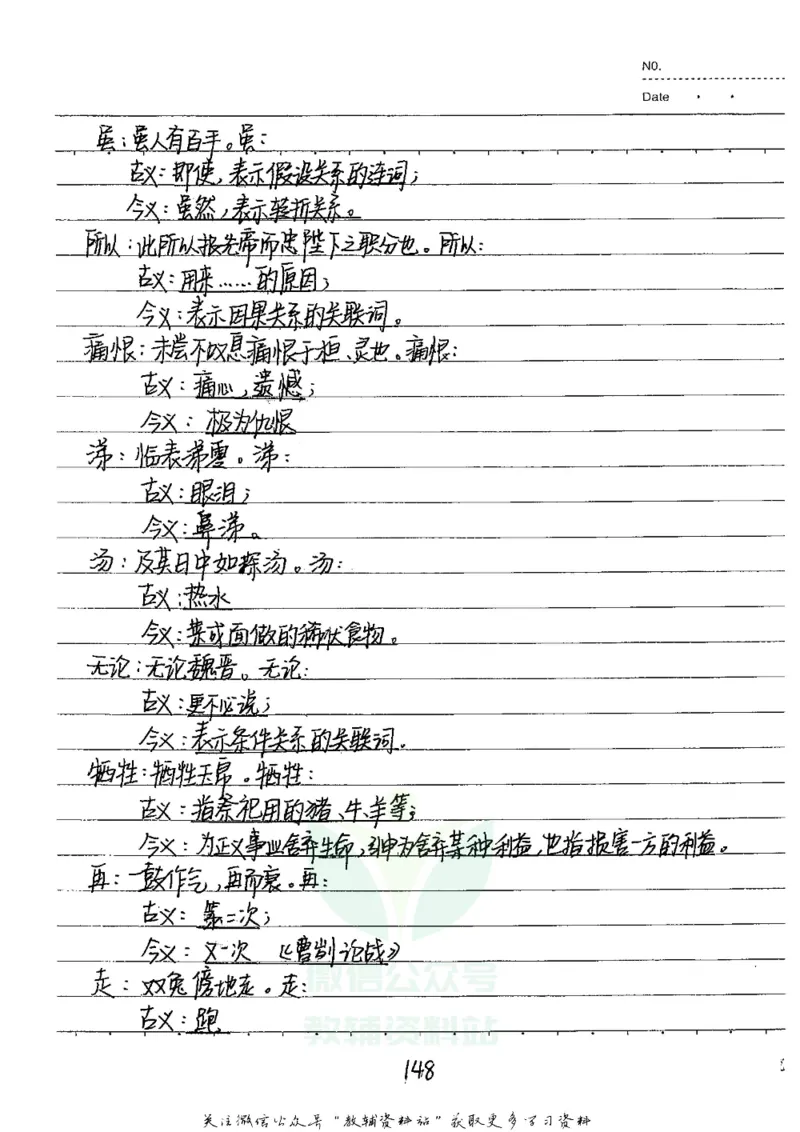 N0.
Date
虽:虽人有百手。虽:
古义:即使,表示假设关系的连词;
今义:虽然,表示转折关系。
所以:此所以报先帝而忠陛下之职分也。所以:
古义:用来……的原因;
今义:表示因果关系的关联词。
痛恨:未尝不叹息痛恨于桓、灵也。痛恨:
古义:痛心,遗憾;
今义:极为仇恨
涕:临表涕零。涕:
古义:眼泪;
今义:鼻涕。
汤:及其日中如探汤。汤:
古义:热水
今义:菜或面做的稀状食物。
无论:无论魏晋。无论:
古义:更不必说;
今义:表示条件关系的关联词。
牺牲:牺牲玉帛。牺牲:
古义:指祭祀用的猪、牛羊等;
今义:为正义事业舍弃生命,引申为舍弃某种利益,也指损害一方的利益。
再:一鼓作气,再而衰。再:
古义:第二次;
今义:又一次 《曹刿论战》
走:双兔傍地走。走:
古义:跑
微信公众号
教辅资料站
148
关注微信公众号"教辅资料站"获取更多学习资料